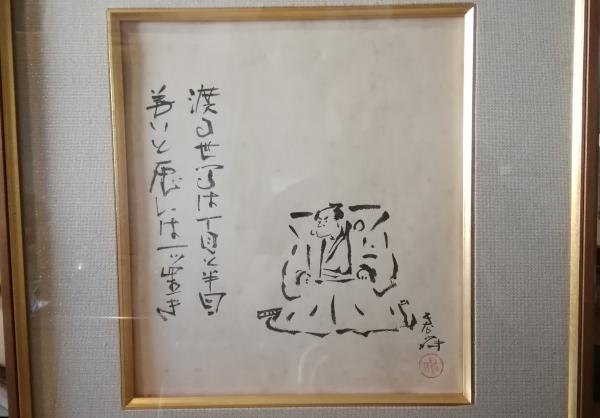 渡る世間は丁目と半目
善いと悪いは一ツ置き